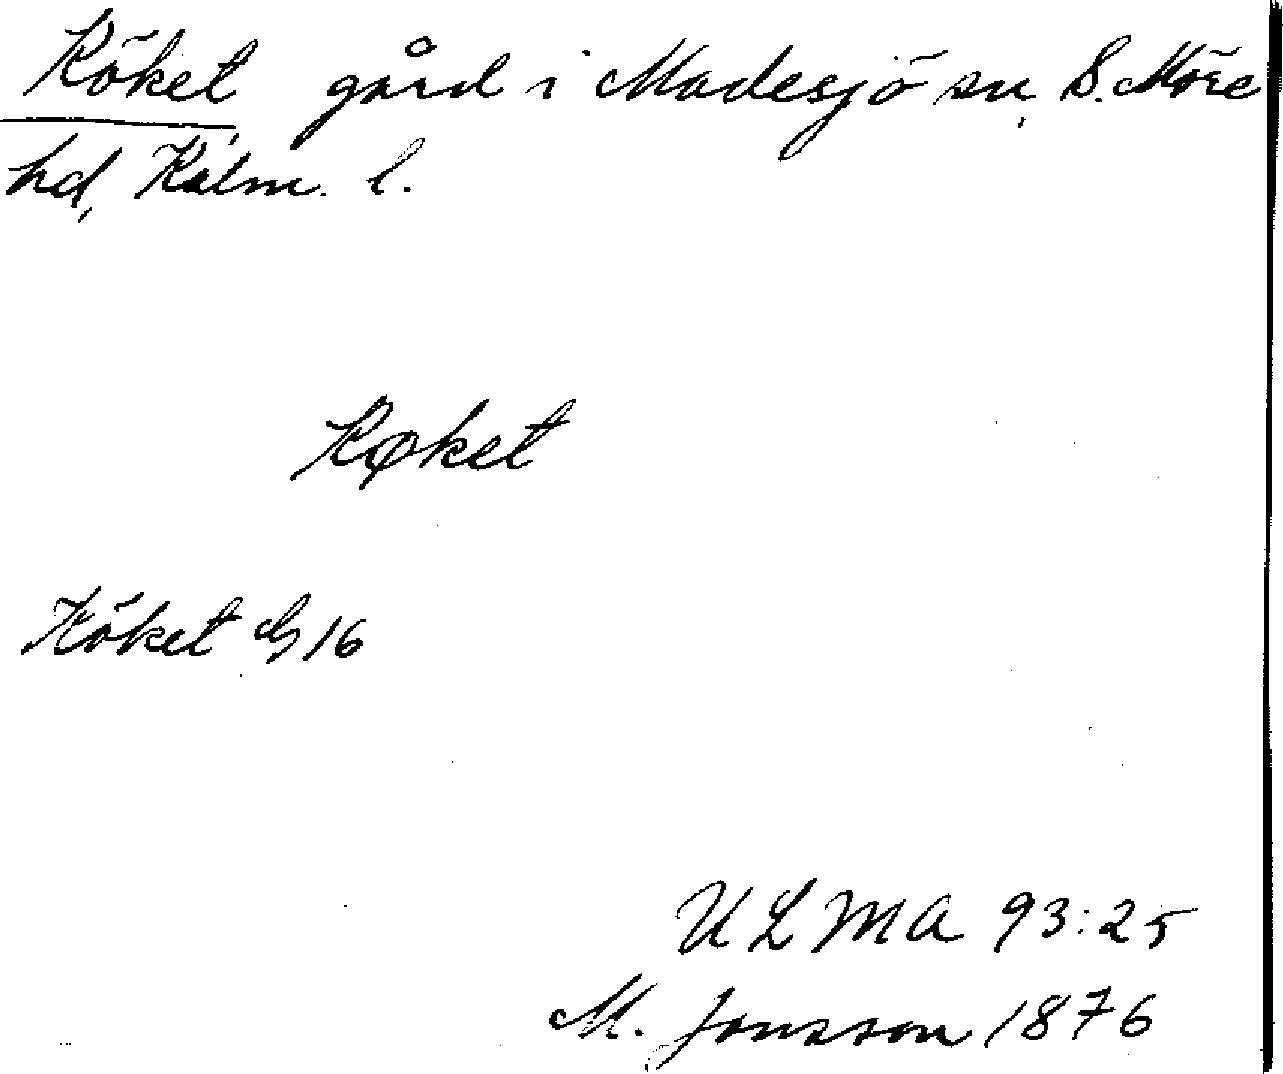 Röket gård i Madesjö sn, S. Möre
hd, Kalm. l.
Røket
Röket G 16
ULMA 93:25
M. Jonsson 1876